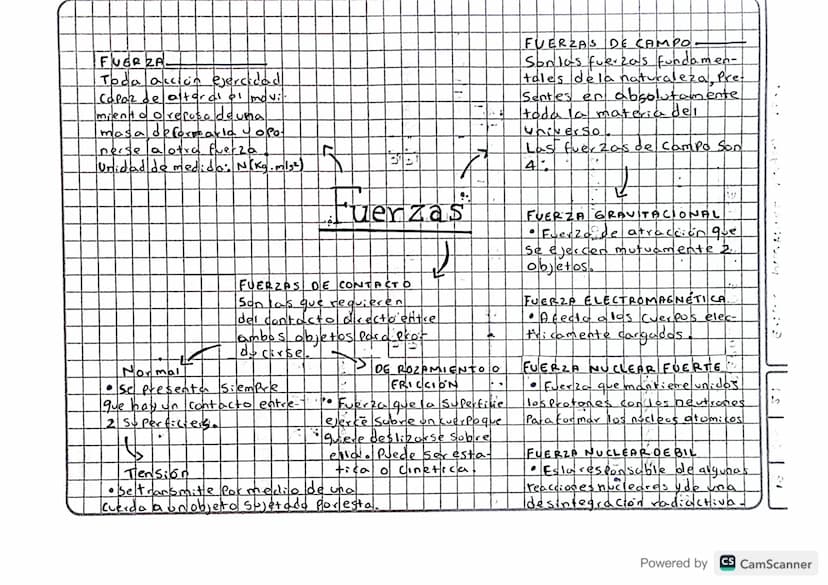 FUERZA
Toda acción ejercidad
capaz de alterar el movi-
miento o reposo de una
masa deformarla y opo
nerse a otra fuerza.
Unidad de medida: N(Kg.m/s²)
Fuerzas
FUERZAS DE CONTACTO
Son las que requieren
del contacto directo entre
ambos objetos para pro-
ducirse.
Normal
• Se presenta siempre
que hay un contacto entre
2 superficies.
Tensión
• Se transmite por medio de una
cuerda a un objeto sujetado por esta.
DE ROZAMIENTO O
FRICCIÓN
• Fuerza que la superficie
ejerce sobre un cuerpo que
quiere deslizarse sobre
ella. Puede ser está-
tica o cinetica.
FUERZAS DE CAMPO
Son las fuerzas fundamen-
tales de la naturaleza, Pre-
sentes en absolutamente
toda la materia del
universo.
Las fuerzas de campo son
4:
FUERZA GRAVITACIONAL
• Fuerza de atracción que
se ejercen mutuamente 2
objetos.
FUERZA ELECTROMAGNÉTICA
• Afecta a los cuerpos elec-
tricamente cargados.
FUERZA NUCLEAR FUERTE
• Fuerza que mantiene unidos
los protones con los neutrones
Para formar los núcleos atomicos
FUERZA NUCLEAR DEBIL
• Es la responsable de algunas
reacciones nucleares y de una
desintegración radiactiva.
Powered by CS CamScanner